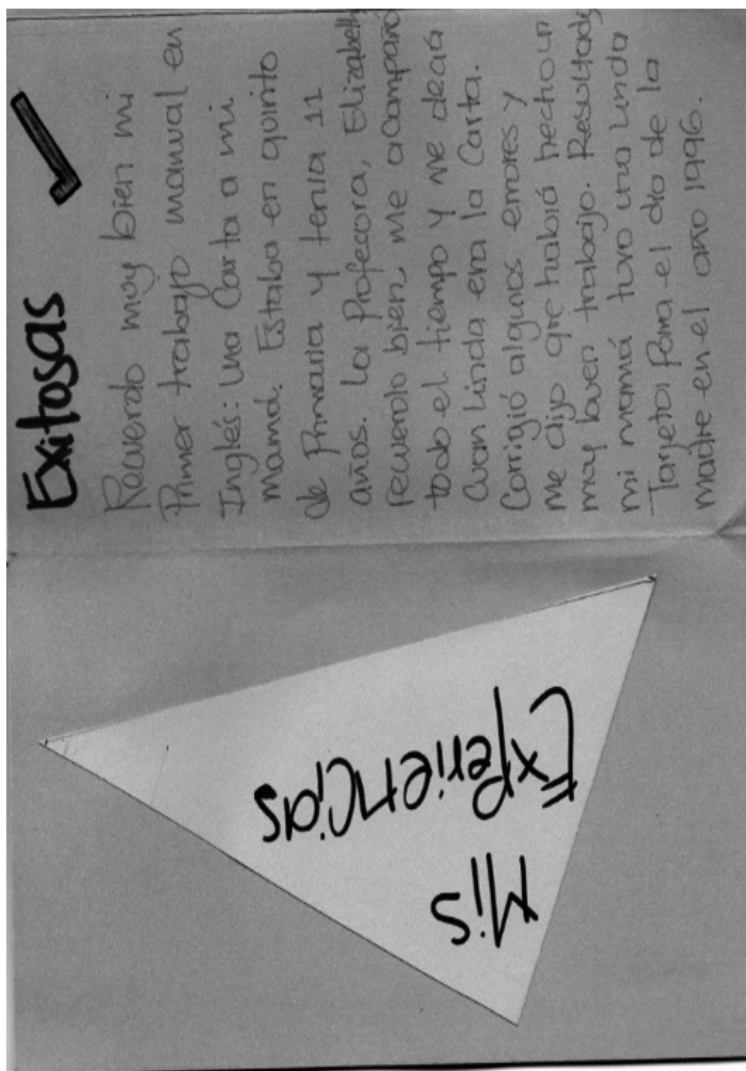 Mis
Experiencias
Exitosas
Recuerdo muy bien mi
Primer trabajo manual en
Inglés: Una Carta a mi
mamá. Estaba en quinto
de Primaria y tenía 11
años. La Profesora, Elizabeth
recuerdo bien, me acompañó
todo el tiempo y me decía
Cuan Linda era la Carta.
Corrigió algunos errores y
me dijo que había hecho un
muy buen trabajo. Resultado
mi mamá tuvo una Linda
Tarjeta Para el día de la
madre en el año 1996.